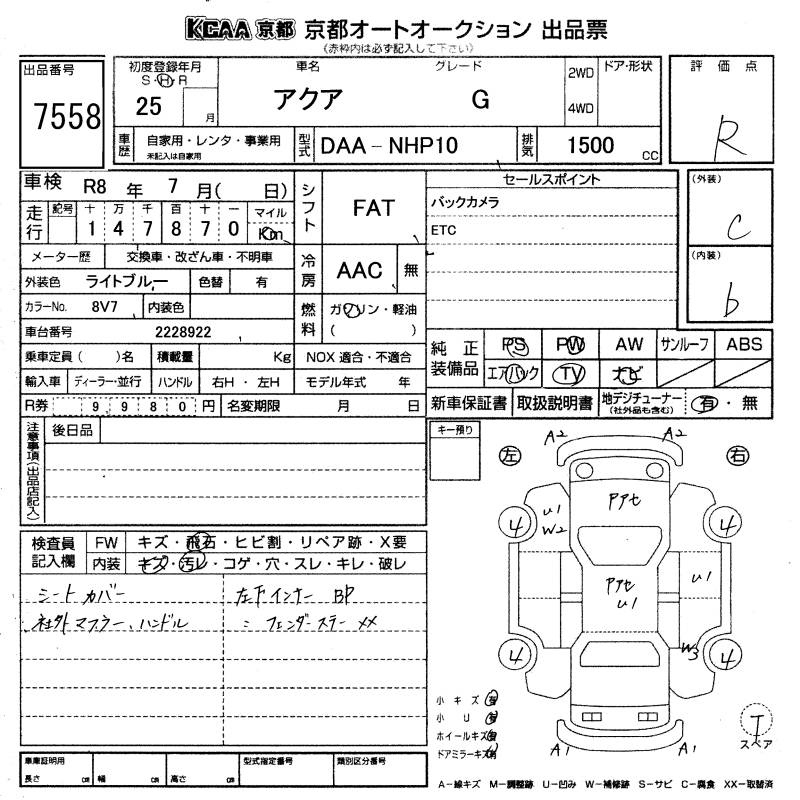 KCAA 京都 京都オートオークション 出品票
(赤枠内は必ず記入して下さい)
出品番号
7558
初度登録年月
S・H・R
25 月
車名
アクア
グレード
G
2WD
4WD
ドア・形状
評価点
R
車歴
自家用・レンタ・事業用
未記入は自家用
型式
DAA-NHP10
排気
1500 CC
車検 R8 年 7 月( 日)
走行
記号 十 万 千 百 十 一
1 4 7 8 7 0
マイル
Km
メーター歴 交換車・改ざん車・不明車
外装色 ライトブルー 色替 有
カラーNo. 8V7 内装色
車台番号 2228922
乗車定員( )名 積載量 Kg NOX 適合・不適合
輸入車 ディーラー・並行 ハンドル 右H・左H モデル年式 年
R券 9 9 8 0 円 名変期限 月 日
シフト
FAT
冷房
AAC 無
燃料
ガソリン・軽油
( )
セールスポイント
バックカメラ
ETC
(外装)
C
(内装)
b
純正装備品
PS PW AW サンルーフ ABS
エアバック TV ナビ
新車保証書 取扱説明書 地デジチューナー
(社外品も含む)
有・無
注意事項(出品店記入)
後日品
キー預り
検査員記入欄
FW キズ・飛石・ヒビ割・リペア跡・X要
内装 キズ・汚レ・コゲ・穴・スレ・キレ・破レ
シートカバー
社外マフラー、ハンドル
左下インナー BP
〃 フェンダーステー XX
左
右
A2 A2
アアセ
U1
W2
4 4
アアセ
U1
U1
W3
4 4
A1 A1
小キズ 有
小U 有
ホイールキズ 有
ドアミラーキズ 有
T
スペア
車庫証明用
長さ cm 幅 cm 高さ cm
型式指定番号
類別区分番号
A-線キズ M-調整跡 U-凹み W-補修跡 S-サビ C-腐食 XX-取替済